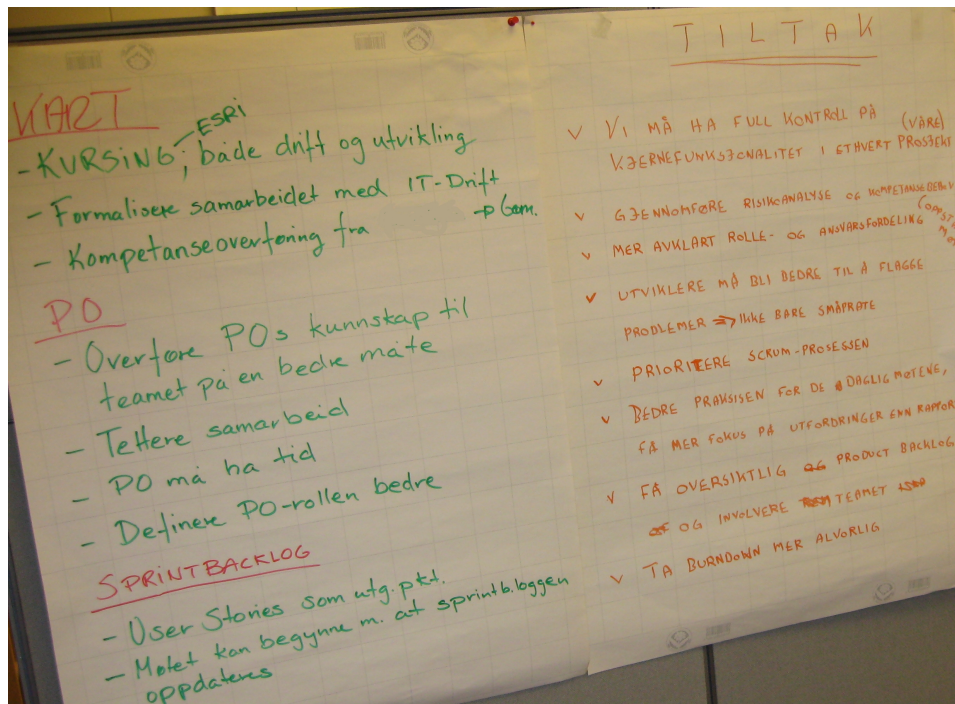 KART
ESRI
- KURSING; både drift og utvikling
- Formalisere samarbeidet med IT-Drift
- Kompetanseoverføring fra → Gem.
PO
- Overføre POs kunnskap til
teamet på en bedre måte
- Tettere samarbeid
- PO må ha tid
- Definere PO-rollen bedre
SPRINTBACKLOG
- User Stories som utg.pkt.
- Møtet kan begynne m. at sprintb.loggen
oppdateres
TILTAK
v VI MÅ HA FULL KONTROLL PÅ (VÅRE)
KJERNEFUNKSJONALITET I ETHVERT PROSJEKT
v GJENNOMFØRE RISIKOANALYSE OG KOMPETANSEBEHOV
v MER AVKLART ROLLE- OG ANSVARSFORDELING
v UTVIKLERE MÅ BLI BEDRE TIL Å FLAGGE
PROBLEMER ⇒ IKKE BARE SMÅPRATE
v PRIORITERE SCRUM-PROSESSEN
v BEDRE PRAKSISEN FOR DE DAGLIG MØTENE,
FÅ MER FOKUS PÅ UTFORDRINGER ENN RAPPOR
v FÅ OVERSIKTLIG PRODUCT BACKLOG
OG INVOLVERE TEAMET
v TA BURNDOWN MER ALVORLIG